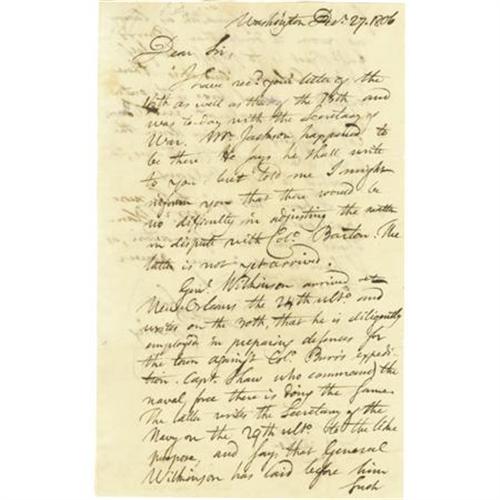 Washington Decr. 27. 1806
Dear Sir,
I have recd. your letter of the
16th as well as that of the 18th and
was to-day with the Secretary of
War. Mr. Jackson happened to
be there He says he shall write
to you but told me I might
inform you that there would be
no difficulty in adjusting the matter
in dispute with Colo. Barton. The
latter is not yet arrived.
Genl. Wilkinson arrived at
New Orleans the 24th ulto. and
writes on the 30th, that he is diligently
employed in preparing defences for
the town against Colo. Burr's expedi-
tion. Capt. Shaw who commands the
naval force there is doing the same
The latter writes the Secretary of the
Navy on the 29th ulto. to the like
purpose, and says that General
Wilkinson has laid before him
such